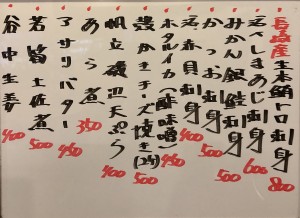 長崎産生本鮪トロ刺身 800
えべしまあじ刺身 600
みかん銀鮭刺身 500
かつお刺身 500
忍貝刺身 400
ホタルイカ(酢味噌) 450
幾かきチーズ焼き(2ヶ) 500
帆立磯辺天ぷら 400
あら煮 350
アサリバター 450
若筍土佐煮 500
谷中生姜 400